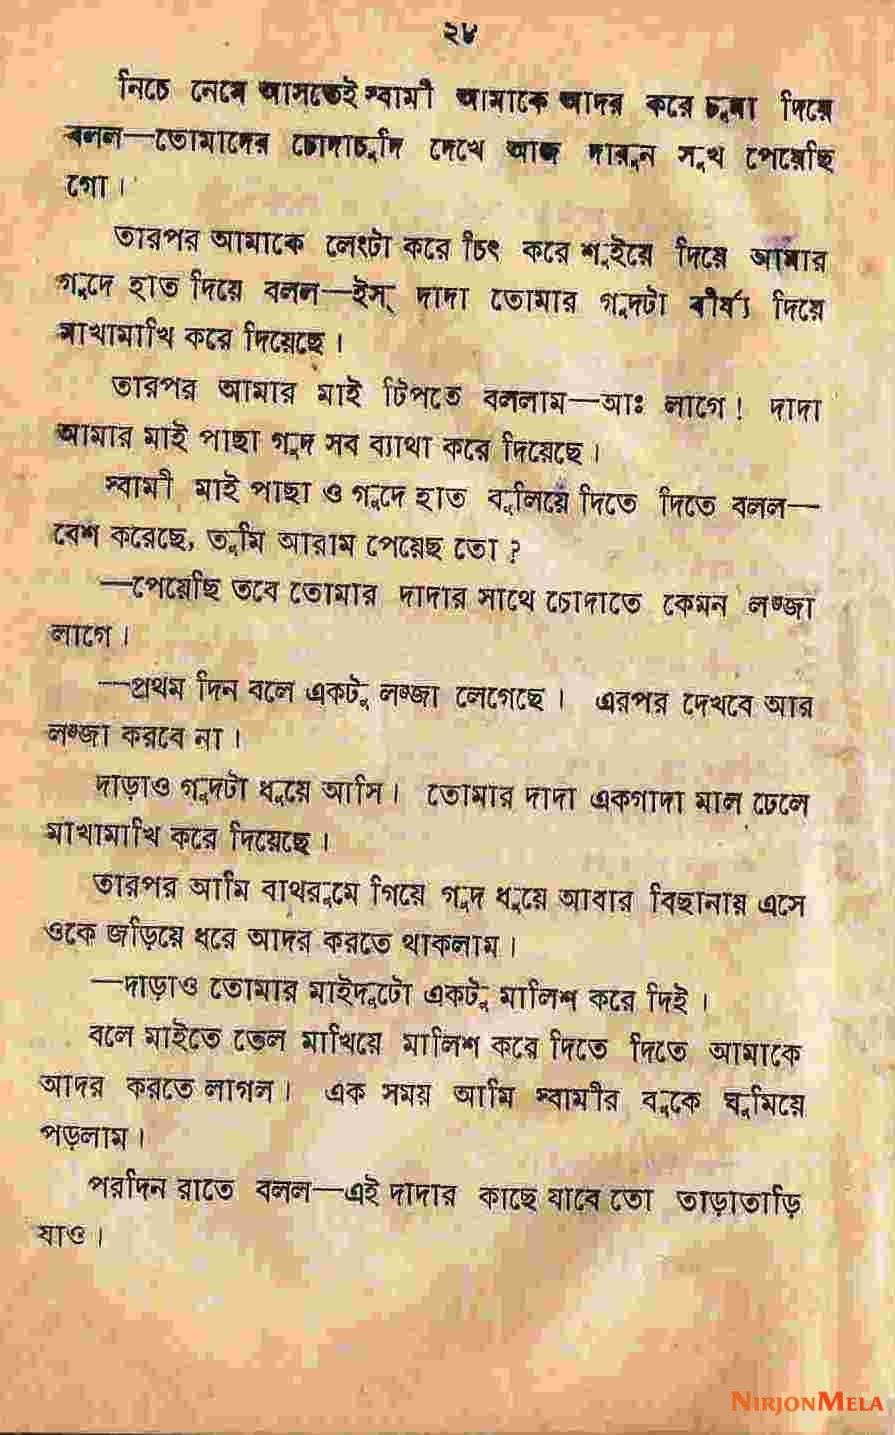 ২৪
নিচে নেমে আসতেই স্বামী আমাকে আদর করে চুমা দিয়ে
বলল—তোমাদের চোদাচুদি দেখে আজ দারুন সুখ পেয়েছি
গো।
তারপর আমাকে লেংটা করে চিৎ করে শুইয়ে দিয়ে আমার
গুদে হাত দিয়ে বলল—ইস্ দাদা তোমার গুদটা বীর্য্য দিয়ে
মাখামাখি করে দিয়েছে।
তারপর আমার মাই টিপতে বললাম—আঃ লাগে! দাদা
আমার মাই পাছা গুদ সব ব্যাথা করে দিয়েছে।
স্বামী মাই পাছা ও গুদে হাত বুলিয়ে দিতে দিতে বলল—
বেশ করেছে, তুমি আরাম পেয়েছ তো?
—পেয়েছি তবে তোমার দাদার সাথে চোদাতে কেমন লজ্জা
লাগে।
—প্রথম দিন বলে একটু লজ্জা লেগেছে। এরপর দেখবে আর
লজ্জা করবে না।
দাড়াও গুদটা ধুয়ে আসি। তোমার দাদা একগাদা মাল ঢেলে
মাখামাখি করে দিয়েছে।
তারপর আমি বাথরুমে গিয়ে গুদ ধুয়ে আবার বিছানায় এসে
ওকে জড়িয়ে ধরে আদর করতে থাকলাম।
—দাড়াও তোমার মাইদুটো একটু মালিশ করে দিই।
বলে মাইতে তেল মাখিয়ে মালিশ করে দিতে দিতে আমাকে
আদর করতে লাগল। এক সময় আমি স্বামীর বুকে ঘুমিয়ে
পড়লাম।
পরদিন রাতে বলল—এই দাদার কাছে যাবে তো তাড়াতাড়ি
যাও।
NIRJONMELA